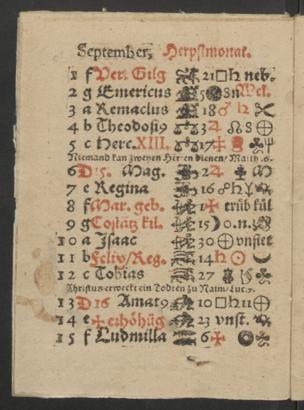 September, Herpstmonat.
1 f Ver. Gilg 21 □ ♄ neb.
2 g Emericus
3 a Remaclus 18 ♂ ♃
4 b Theodosi9 3 ♃ ☊
5 c Herc. XIII. 17
Niemand kan zweyen Herren dienen/ Matth. 6.
6 D 15. Mag. 2
7 e Regina 16
8 f Mar. geb. 1 trüb kül
9 g Costātz kil. 15 ☽ o. n.
10 a Isaac 30 ⊕ vnstet
11 b Felix/Reg. 14 ♄ ☉
12 c Tobias 27
Christus erweckt ein Todten zu Naim/ Luc. 7.
13 D 16 Amat9 10 □ ♄ ⊕
14 e ✠ erhöhūg 23 vnst.
15 f Ludmilla 6